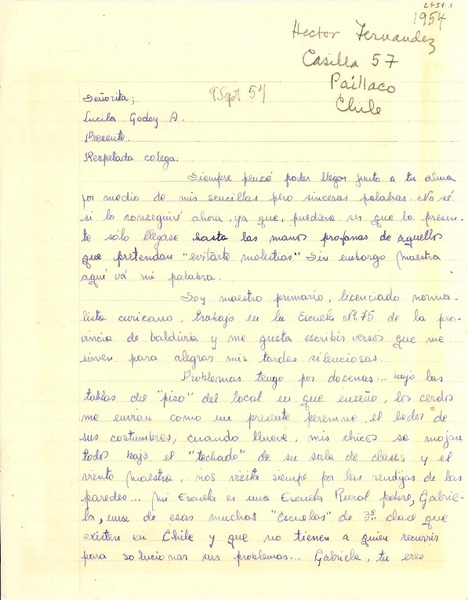 1954
Hector Fernandez
Casilla 57
Paillaco
Chile
9 Sept 54
Señorita;
Lucila Godoy A.
Presente.
Respetada colega:
Siempre pensé poder llegar junto a tu alma
por medio de mis sencillas pero sinceras palabras. No sé
si lo conseguiré ahora, ya que, pudiera ser que la presen-
te sólo llegase hasta las manos profanas de aquellos
que pretendan "evitarte molestias" Sin embargo Maestra
aquí vá mi palabra.
Soy maestro primario, licenciado norma-
lista curicano, trabajo en la Escuela Nº 75 de la pro-
vincia de Valdivia y me gusta escribir versos que me
sirven para alegrar mis tardes silenciosas.
Problemas tengo por docenas... bajo las
tablas del "piso" del local en que enseño, los cerdos
me envían como un presente perenne, el hedor de
sus costumbres, cuando llueve, mis chicos se mojan
todos bajo el "techado" de su sala de clases y el
viento Maestra, nos visita siempre por las rendijas de las
paredes... Mi Escuela es una Escuela Rural pobre, Gabrie-
la, una de esas muchas "Escuelas" de 3ª clase que
existen en Chile y que no tienen a quien recurrir
para solucionar sus problemas... Gabriela, tu eres